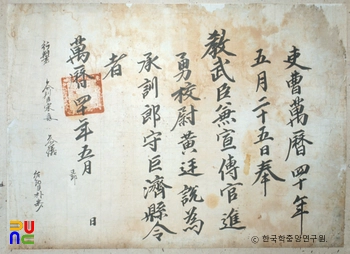 吏曹萬曆四十年
五月二十五日奉
教武臣兼宣傳官進
勇校尉黃廷說為
承訓郎守巨濟縣令
者
萬曆四十年五月 日
PUNC
ⓒ 한국학중앙연구원